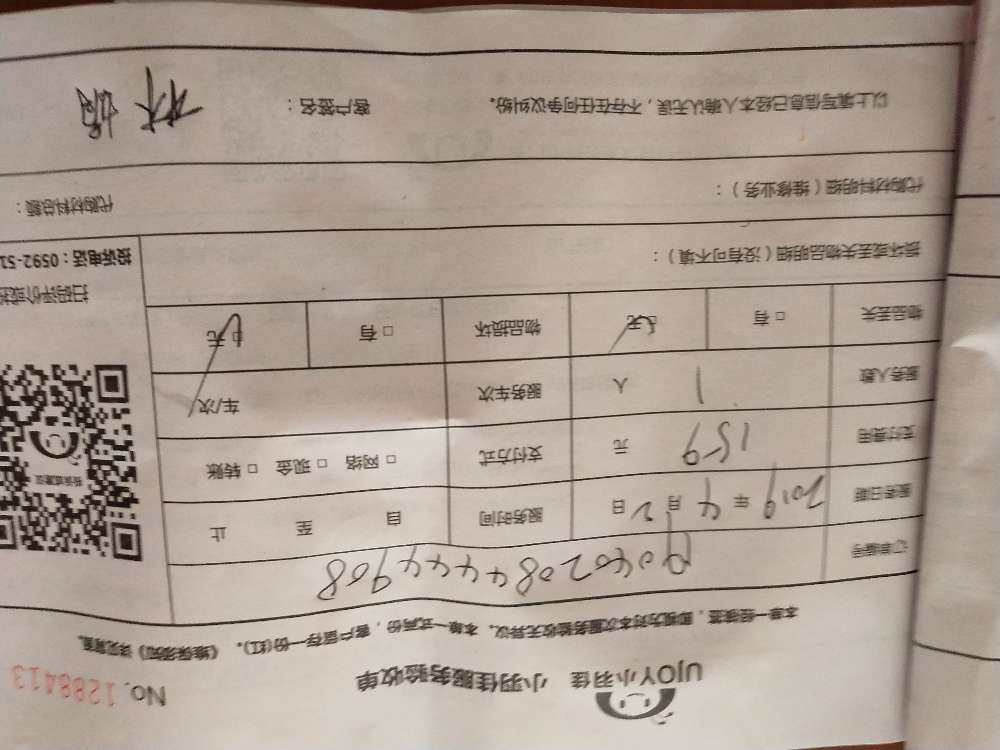 UJOY小羽佳 小羽佳服务验收单 No. 1288413
本单一经填签，即视为对本次服务验收无异议。本单一式两份，客户留存一份(红)。《维保须知》详见背面
订单编号 9040208444908
服务日期 2019 年 4 月 2 日 服务时间 自 至 止
支付费用 159 元 支付方式 □ 网络 □ 现金 □ 转账
服务人数 1 人 服务车次 车/次
物品丢失 □ 有 □ 无 物品损坏 □ 有 □ 无
损坏或丢失物品明细（没有可不填）：
扫码评价或投
投诉电话：0592-51
代购材料明细（维修业务）： 代购材料总额：
以上填写信息已经本人确认无误，不存在任何争议纠纷。 客户签名： 林娟